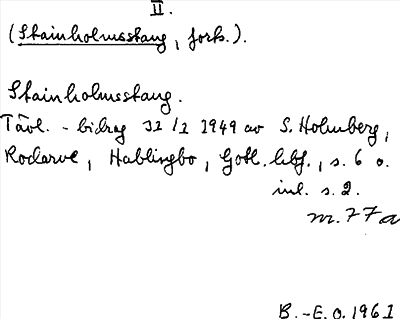 II.
(Stainholmsstaug, forts.).
Stainholmsstaug.
Tävl. - bidrag 31/1 1949 av S. Holmberg,
Rodarve, Hablingbo, Gotl. , s. 6 o.
inl. s. 2.
m. 77a
B.-E. O. 1961